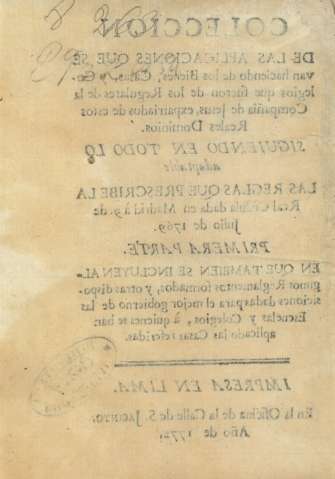 COLECCION
DE LAS APLICACIONES QUE SE
van haciendo de los Bienes, Casas, y Co-
legios que fueron de los Regulares de la
Compañia de Jesus, expatriados de estos
Reales Dominios.
SIGUIENDO EN TODO LO
adaptable
LAS REGLAS QUE PRESCRIBE LA
Real Cédula dada en Madrid à 9. de
Julio de 1769.
PRIMERA PARTE.
EN QUE TAMBIEN SE INCLUYEN AL-
gunos Reglamentos formados, y otras dispo-
siciones dadas para el mejor gobierno de las
Escuelas y Colegios, à quienes se han
aplicado las Casas referidas.
IMPRESA EN LIMA.
En la Oficina de la Calle de S. JACINTO.
Año de 1772.